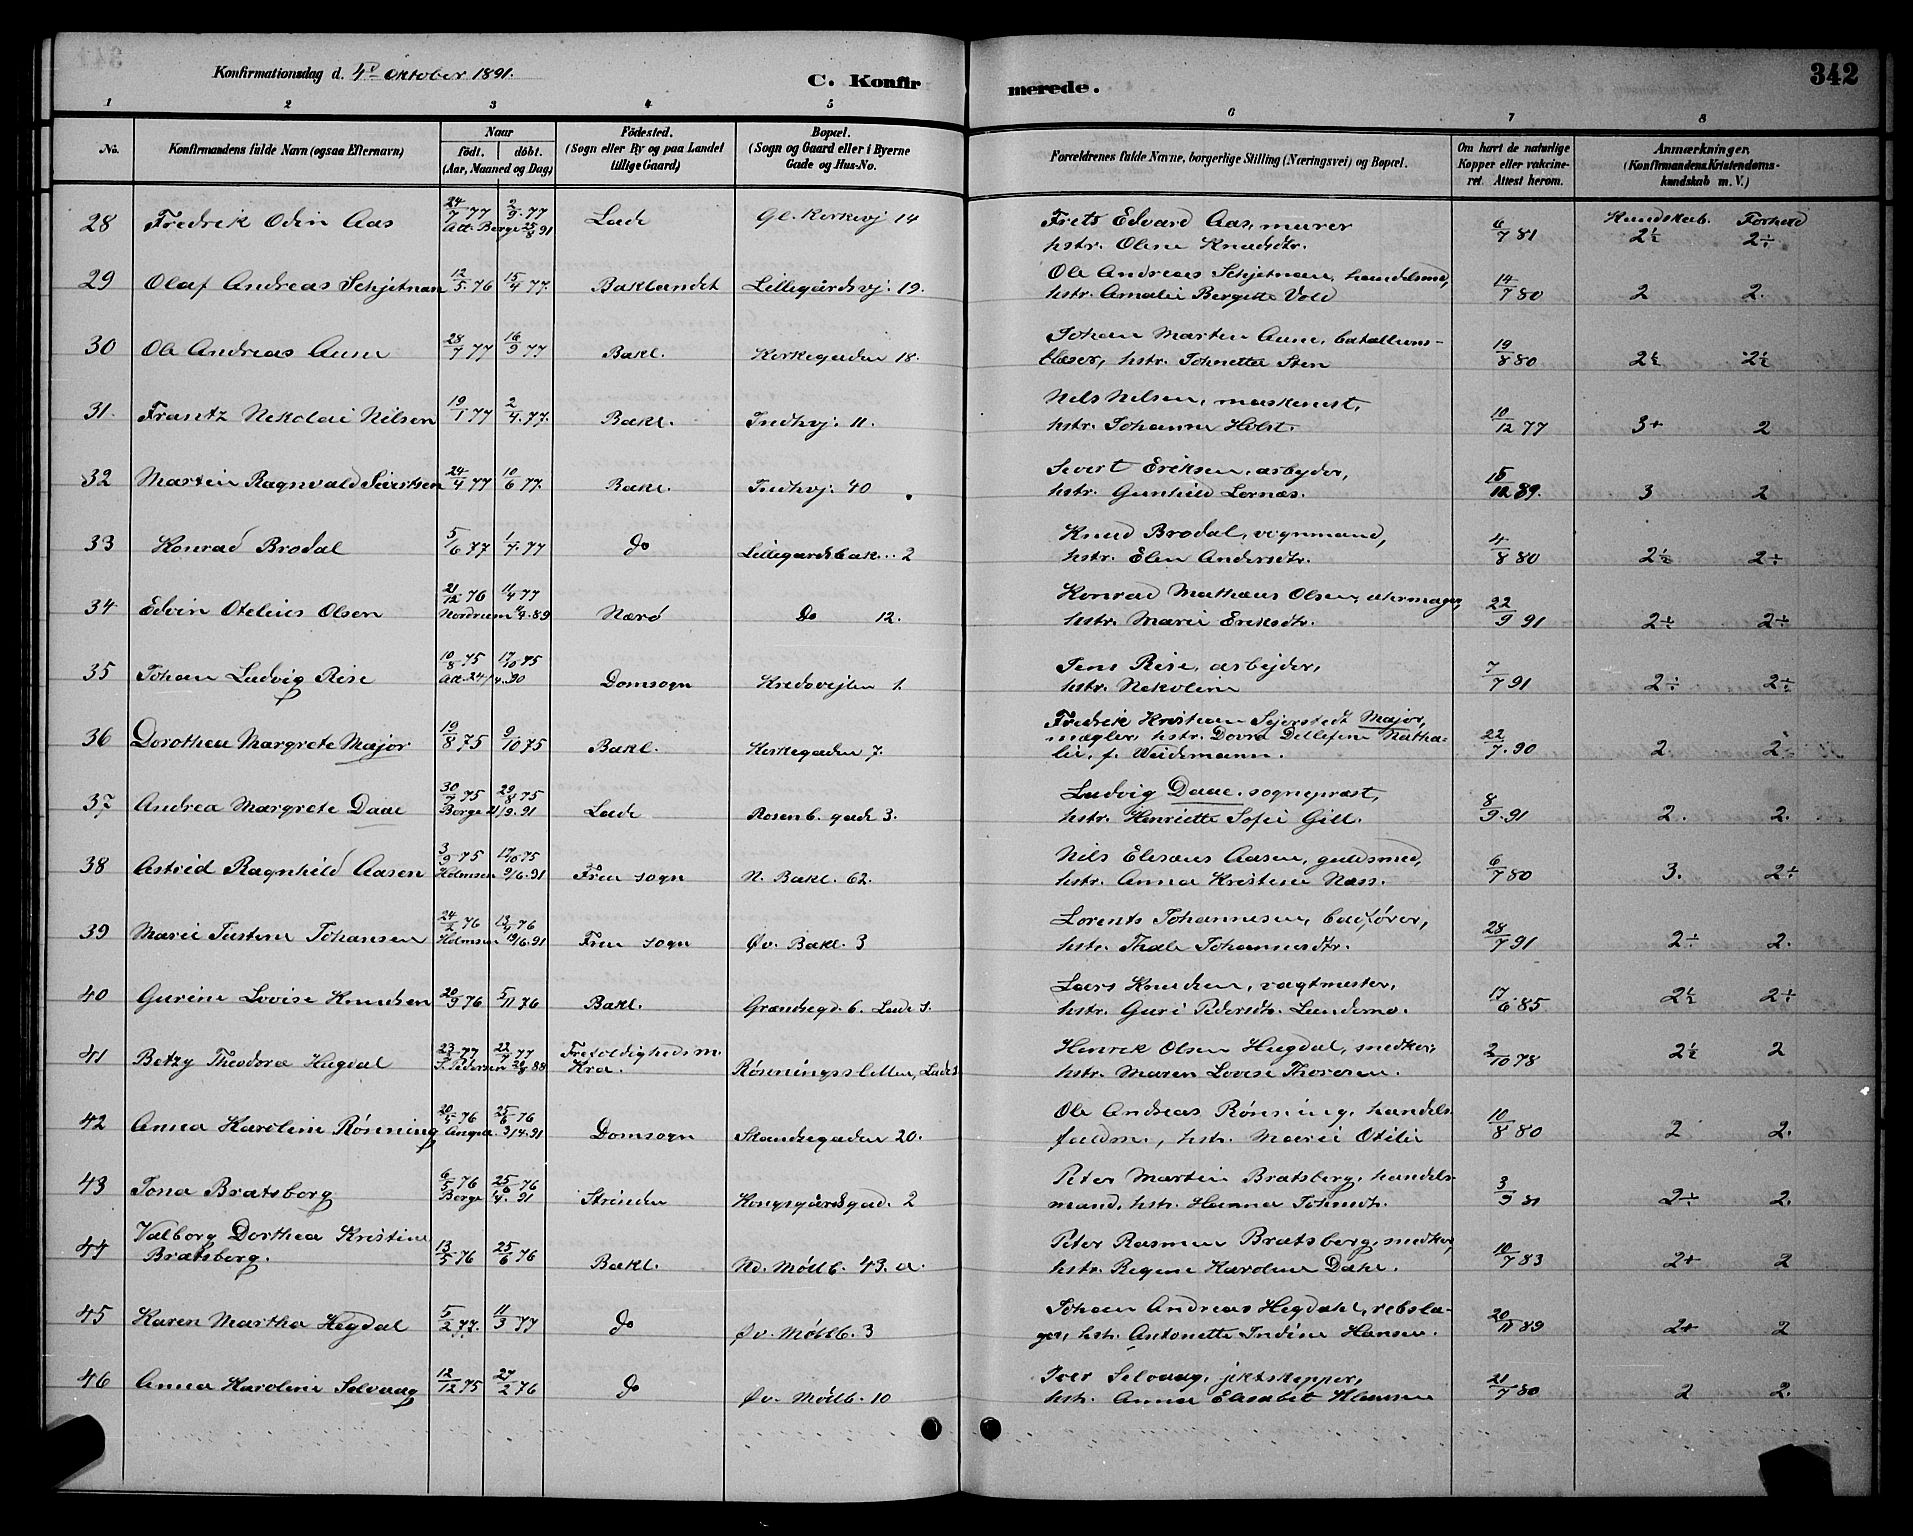 Konfirmationsdag d. 4de oktober 1891.
C. Konfirmerede.
342
1 2 3 4 5 6 7 8
No.
Konfirmandens fulde Navn (ogsaa Efternavn)
Naar
födt. | döbt.
(Aar, Maaned og Dag)
Födested.
(Sogn eller By og paa Landet
tillige Gaard)
Bopæl.
(Sogn og Gaard eller i Byerne
Gade og Hus-No.
Forældrenes fulde Navne, borgerlige Stilling (Næringsvei) og Bopæl.
Om havt de naturlige
Kopper eller vakcine-
ret. Attest herom.
Anmærkninger,
(Konfirmandens Kristendoms-
kundskab m. V.)
Kundskab. Forhold
28 Fredrik Odin Aas 24/7 77 2/9 77 Lade Gl. Kirkevj 14 Frets Edvard Aas, murer 6/7 81 2½ 2÷
Att. Berge 25/8 91 hstr. Oline Knudsdtr.
29 Olaf Andreas Schjetnan 12/5 76 15/4 77. Baklandet Lillegårdsvj. 19. Ole Andreas Schjetnan, handelsmd, 14/7 80 2 2.
hstr. Amalie Bergitte Vold
30 Ole Andreas Aune 28/7 77 16/9 77 Bakl. Kirkegaden 18. Johan Martin Aune, bataillons- 19/8 80 2½ 2½
blæser, hstr. Johnetta Sten
31. Frantz Nikolai Nilsen 19/1 77 2/4 77. Bakl. Indhvj. 11. Nils Nilsen, maskinist, 10/12 77 3+ 2
hstr. Johanna Holst.
32 Martin Ragnvald Sivertsen 24/4 77 10/6 77. Bakl. Indhvj. 40 Sivert Eriksen, arbejder, 15/12 89. 3 2
hstr. Gunhild Lornæs.
33 Konrad Brodal 5/6 77 1/7 77 do Lillegårdsbak. 2 Knud Brodal, vognmand, 4/8 80 2½ 2÷
hstr. Elen Andersdtr.
34 Edvin Otelius Olsen 21/12 76 11/4 77 Nærö do 12. Konrad Mathæus Olsen, urmager, 22/9 91 2÷ 2÷
Nordrum 11/9 89 hstr. Marie Eriksdtr.
35 Johan Ludvig Rise 10/8 75 17/10 75 Domsogn Kredsvejten 1. Jens Rise, arbejder, 7/7 91 2÷ 2÷
Att. 24/4 90 hstr. Nekoline
36 Dorothea Margrete Major 19/8 75 9/10 75 Bakl. Kirkegaden 7. Fredrik Kristian Sejersted Major,
mægler, hstr. Dovra Detlefine Natha- 22/7 90 2. 2
lie, f. Weidemann.
37 Andrea Margrete Daae 30/7 75 29/8 75 Lade Rosenb. gade 3. Ludvig Daae, sognepræst, 8/9 91 2. 2.
Berge 21/9 91 hstr. Henriette Sofie Gill.
38 Astrid Ragnhild Aasen 3/9 75 17/10 75 Frue sogn N. Bakl. 62. Nils Elisæus Aasen, guldsmed, 6/7 80 3. 2÷
Holmsen 9/6 91 hstr. Anna Kristine Næss.
39 Marie Justine Johansen 24/2 76 13/4 76 Frue sogn Øv. Bakl. 3 Lorents Johannesen, badfører, 28/7 91 2÷ 2.
Holmsen 19/6 91 hstr. Thale Johannesdtr.
40 Gurine Lovise Knudsen 20/9 76 5/11 76 Bakl. Grændsegd. 6. Lade s. Lars Knudsen, vægtmester, 17/6 85 2½ 2÷
hstr. Guri Pedersdtr. Lundemo.
41 Betzy Theodora Hegdal 23/3 77 22/7 77 Trefoldigheds m. Rönningssletten, Lade s Henrik Olsen Hegdal, snedker, 2/10 78 2½ 2
J. Pedersen 20/8 88 Kra. hstr. Maren Lovise Thoresen.
42 Anna Karoline Rönning 20/4 76 25/6 76 Domsogn Skandsegaden 20. Ole Andreas Rönning, handels- 10/8 80 2 2.
Angel. 3/4 91 fuldm., hstr. Marie Otilie
43 Jona Bratsberg 6/5 76 25/6 76 Strinden Kongsgårdsgad. 2 Peter Martin Bratsberg, handels- 3/9 81 2÷ 2.
Berge 91 mand, hstr. Hanna Johnsdtr.
44 Valborg Dorthea Kristine
Bratsberg. 13/5 76 25/6 76 Bakl. Nd. Möllb. 43. a. Peter Rasmus Bratsberg, snedker, 10/7 83 2+ 2
hstr. Regine Karoline Dahl.
45 Karen Martha Hegdal 5/2 77. 11/3 77 do Øv. Möllb. 3 Johan Andreas Hegdahl, rebsla- 20/11 89 2+ 2
ger, hstr. Antonette Indine Hansen.
46 Anna Karoline Selvaag 12/12 75 27/2 76 do Øv. Möllb. 10 Iver Selvaag, jektskipper, 21/7 80 2 2.
hstr. Anna Elisabet Klausen